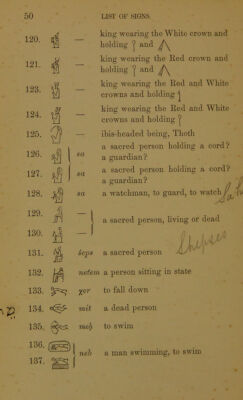 50 LIST OF SIGNS.
120. — king wearing the White crown and
holding and
121. — king wearing the Red crown and
holding and
123. — king wearing the Red and White
crowns and holding
124. — king wearing the Red and White
crowns and holding
125. — ibis-headed being, Thoth
126. sa a sacred person holding a cord?
a guardian?
127. sa a sacred person holding a cord?
a guardian?
128. sa a watchman, to guard, to watch
129. —
a sacred person, living or dead
130. —
Shepses
131. šeps a sacred person
132. netem a person sitting in state
133. χer to fall down
134. mit a dead person
135. meḥ to swim
136.
neb a man swimming, to swim
137.